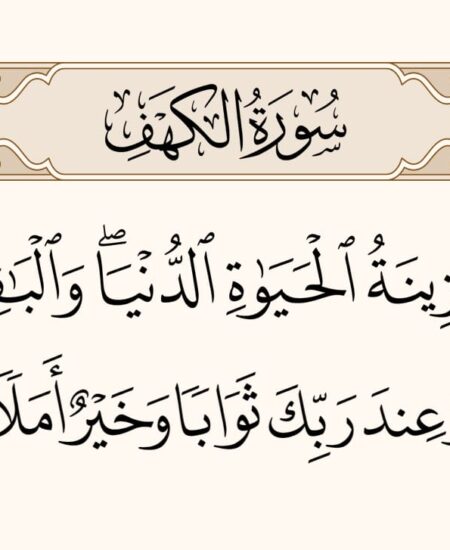 سُورَةُ الْكَهْفِ
زِينَةُ ٱلْحَيَوٰةِ ٱلدُّنْيَا ۖ وَٱلْبَـٰقِ
عِندَ رَبِّكَ ثَوَابًا وَخَيْرٌ أَمَلًا